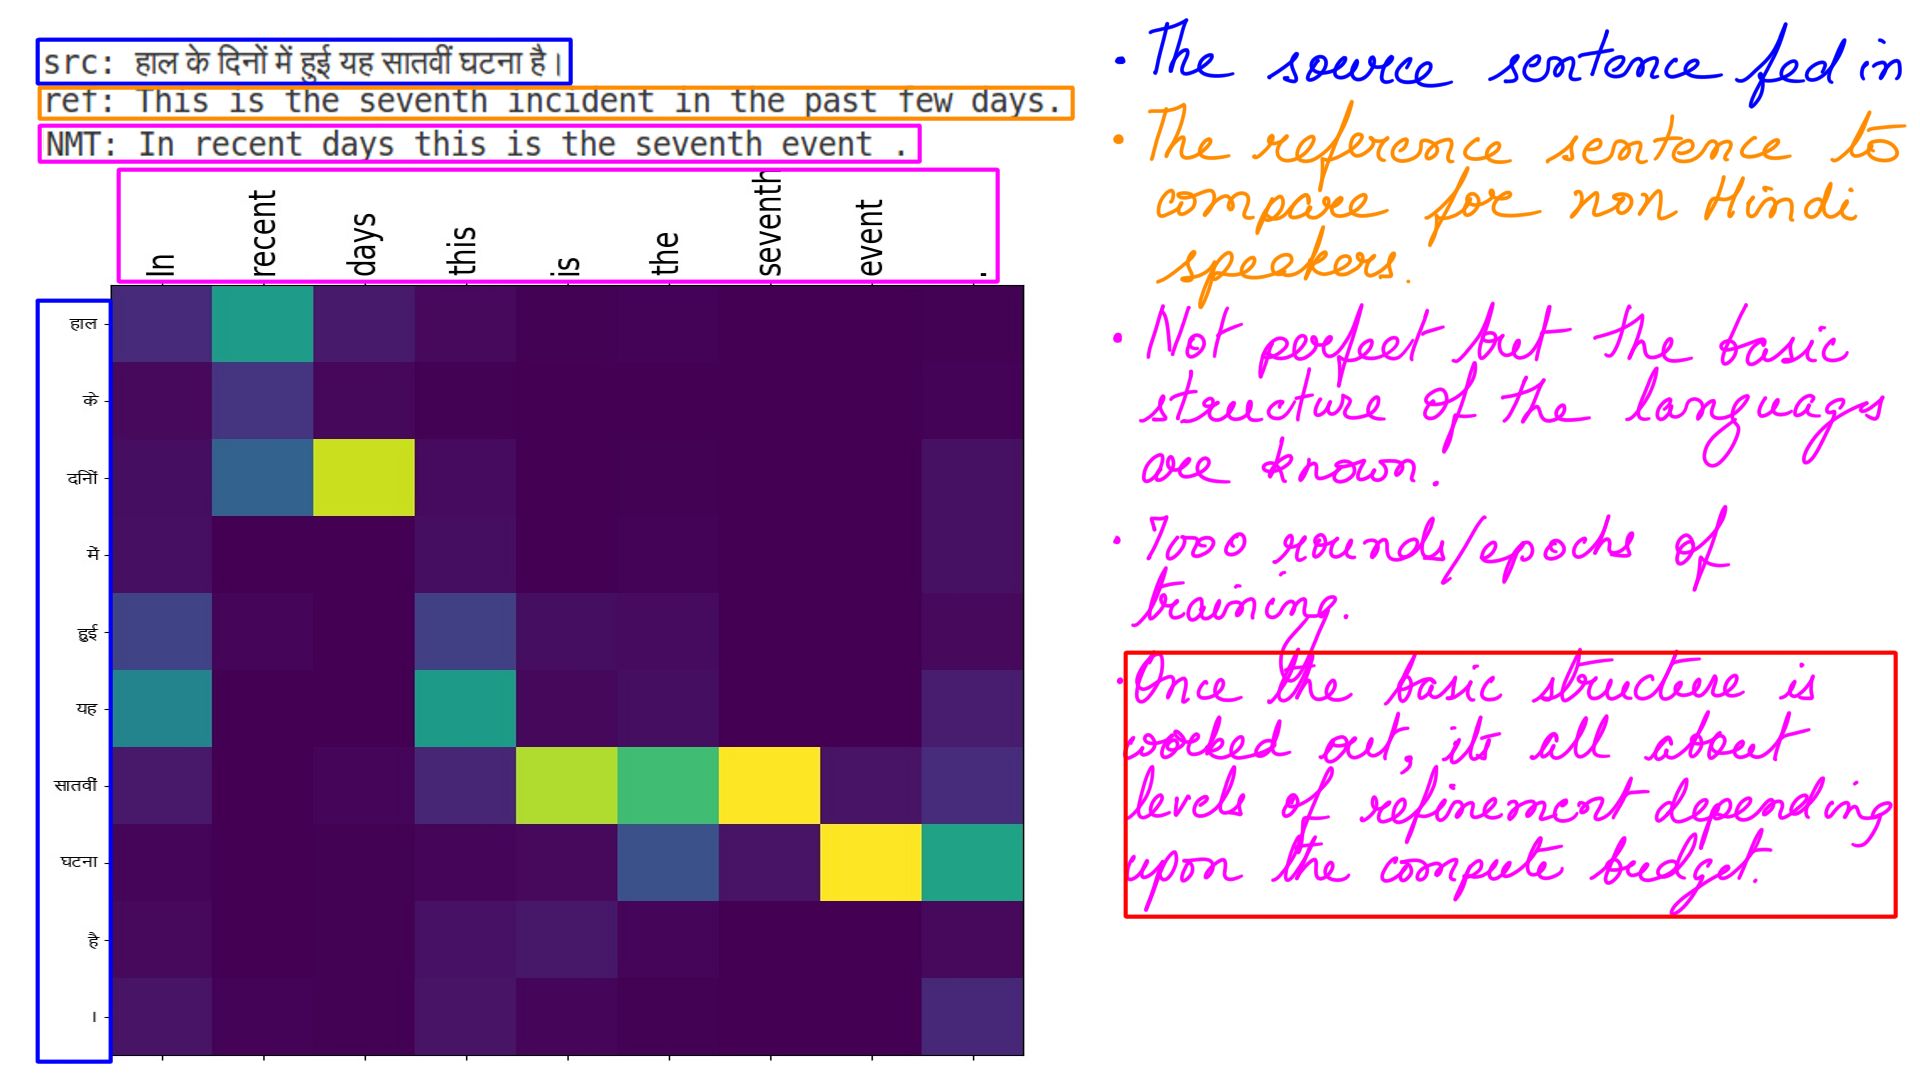 src: हाल के दिनों में हुई यह सातवीं घटना है।
ref: This is the seventh incident in the past few days.
NMT: In recent days this is the seventh event .
In recent days this is the seventh event .
हाल
के
दिनों
में
हुई
यह
सातवीं
घटना
है
।
• The source sentence fed in
• The reference sentence to
compare for non Hindi
speakers.
• Not perfect but the basic
structure of the languages
are known.
• 7000 rounds/epochs of
training.
• Once the basic structure is
worked out, its all about
levels of refinement depending
upon the compute budget.